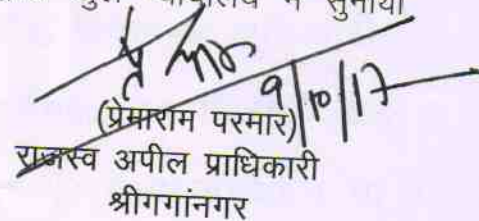 में सुनाया
9/10/17
(प्रेमाराम परमार)
राजस्व अपील प्राधिकारी
श्रीगगांनगर